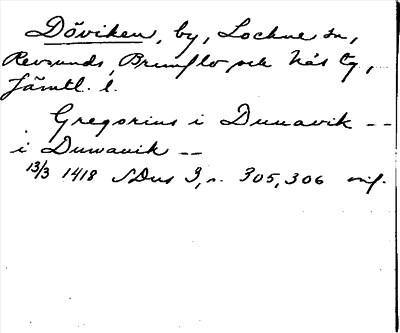 Döviken, by, Lockne sn,
Revsunds, Brunflo och Näs tg,
Jämtl. l.
Gregorius i Duuavik --
i Duwavik --
13/3 1418 SDns 3, s. 305, 306 orig.